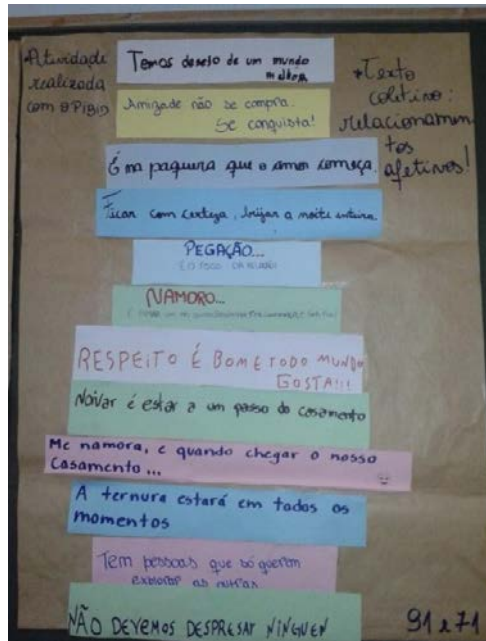 Atividade
realizada
com o Pibid
Temos desejo de um mundo
melhor
*Texto
coletivo:
relacionamen
tos
afetivos!
Amizade não se compra.
Se conquista!
É na paquera que o amor começa.
Ficar com certeza, beijar a noite inteira.
PEGAÇÃO...
É O FOGO DA
NAMORO...
RESPEITO É BOM E TODO MUNDO
GOSTA!!!
Noivar é estar a um passo do casamento
Me namora, e quando chegar o nosso
Casamento...
A ternura estará em todos os
momentos
Tem pessoas que só querem
explorar as outras
NÃO DEVEMOS DESPRESAR NINGUEN
91 e 71